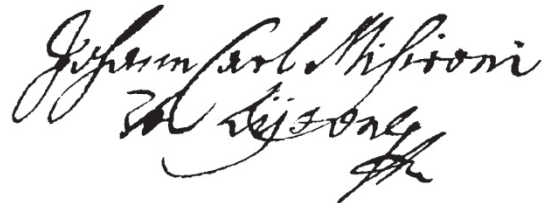 Johann Carl Misironi
Za Lijsone